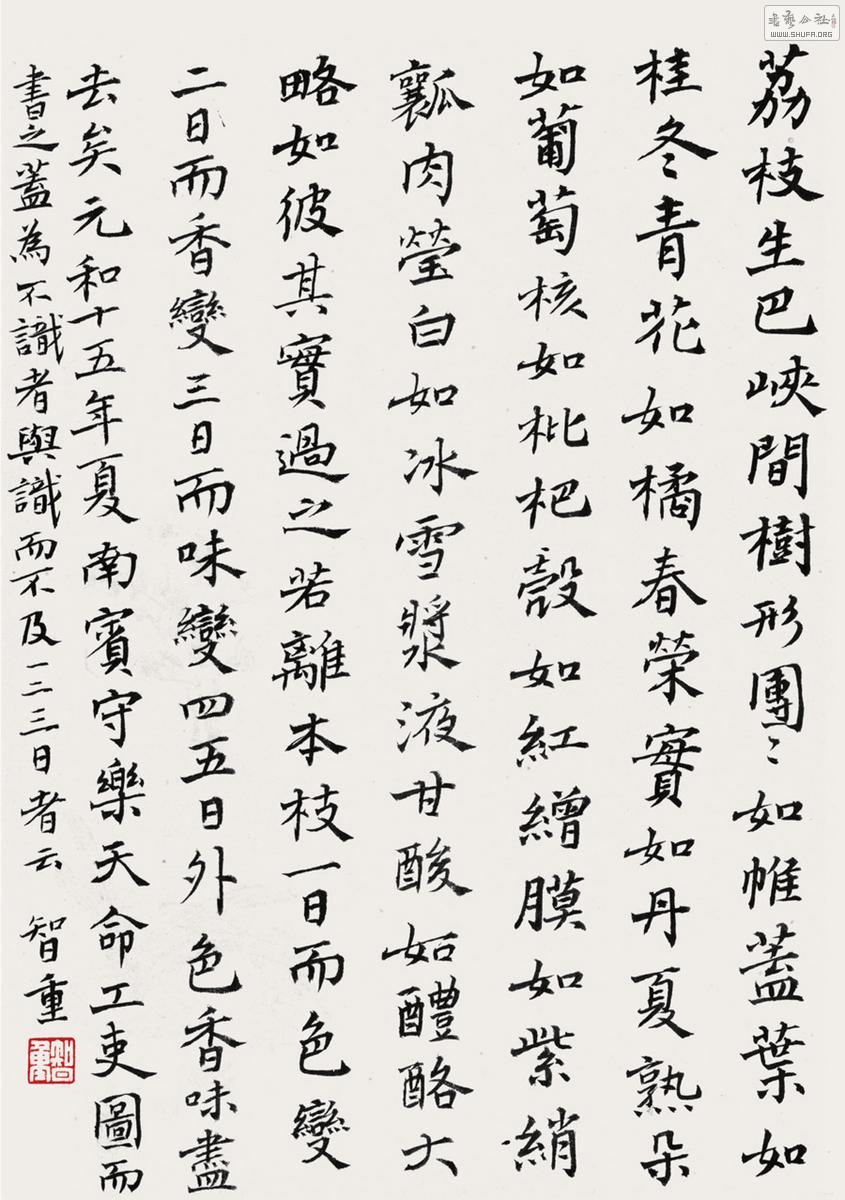 荔枝生巴峽間樹形團〻如帷蓋葉如
桂冬青花如橘春榮實如丹夏熟朵
如葡萄核如枇杷殼如紅繒膜如紫綃
瓤肉瑩白如冰雪漿液甘酸如醴酪大
略如彼其實過之若離本枝一日而色變
二日而香變三日而味變四五日外色香味盡
去矣元和十五年夏南賓守樂天命工吏圖而
書之蓋為不識者與識而不及一二三日者云 智重
智重
書藝公社
WWW.SHUFA.ORG